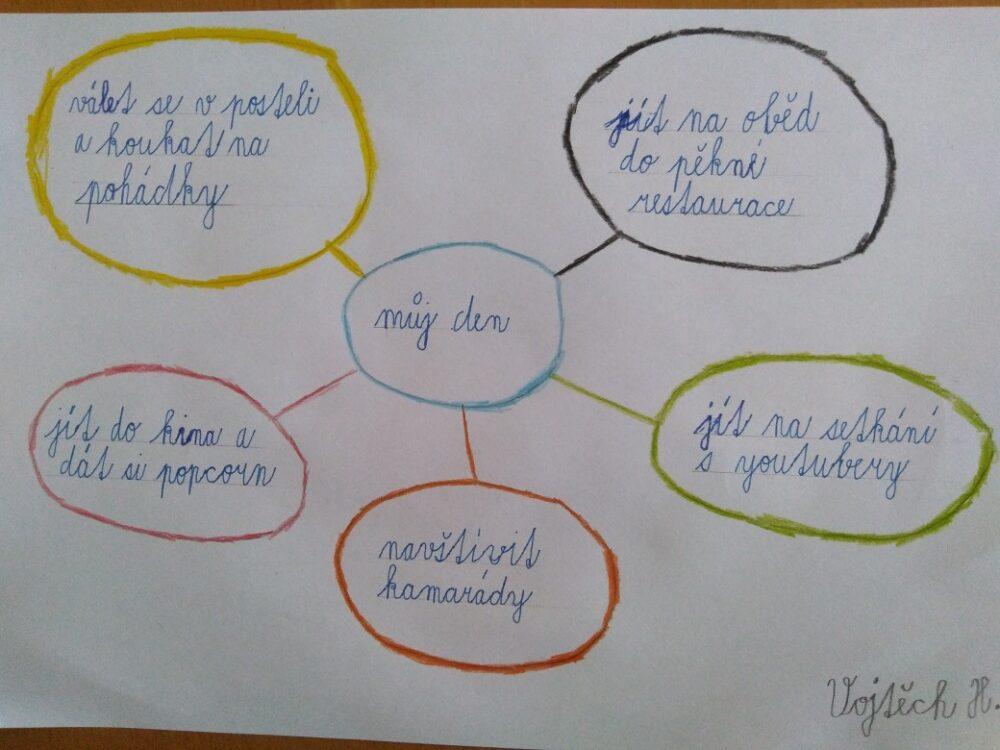 válet se v posteli
a koukat na
pohádky
jít na oběd
do pěkné
restaurace
můj den
jít do kina a
dát si popcorn
jít na setkání
s youtubery
navštívit
kamarády
Vojtěch H.